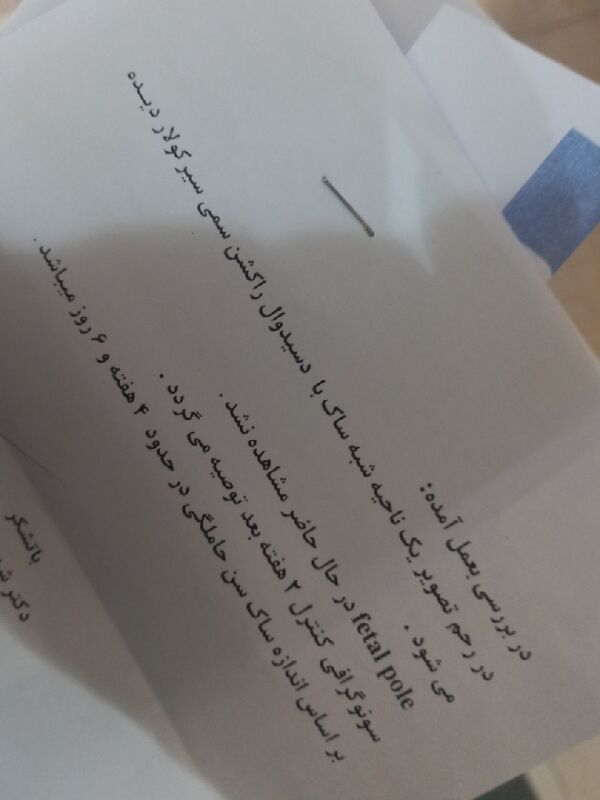 در بررسی بعمل آمده:
در رحم تصویر یک ناحیه شبه ساک با دسیدوال راکشن سمی سیرکولار دیده
می شود .
fetal pole در حال حاضر مشاهده نشد .
سونوگرافی کنترل ۲ هفته بعد توصیه می گردد .
بر اساس اندازه ساک سن حاملگی در حدود ۴ هفته و ۶ روز میباشد .
باتشکر
دکتر